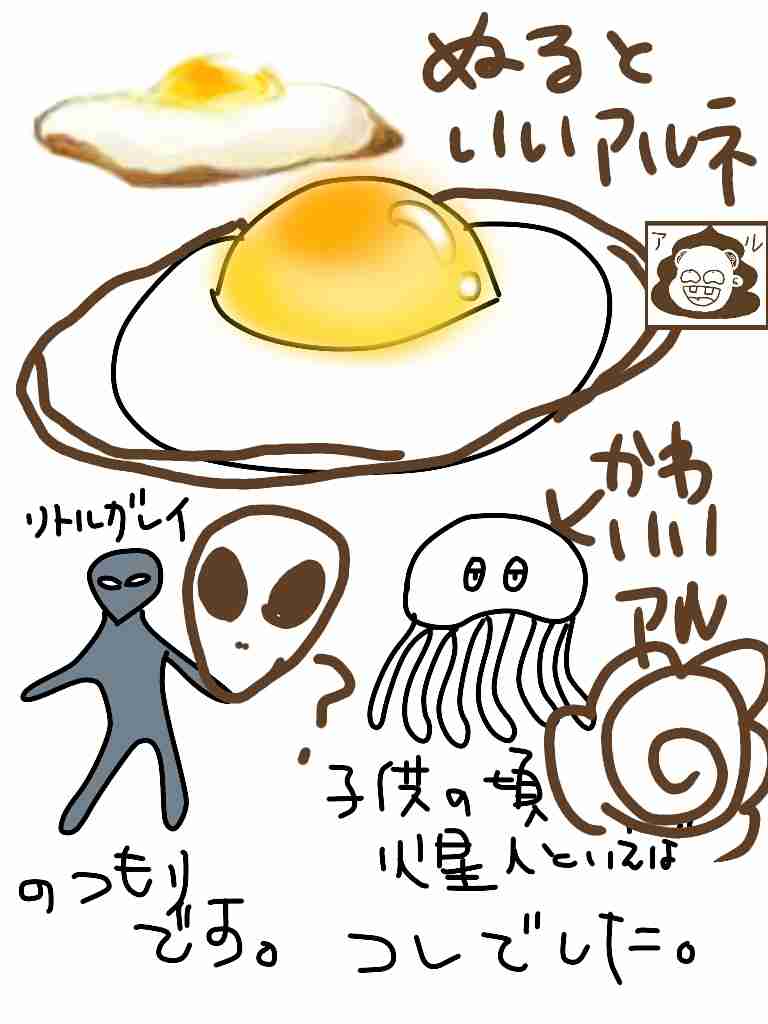 ぬると
いいアルネ
アル
かわ
いい
アル
リトルガレイ
?
のつもり
です。
子供の頃
火星人といえば
コレでした。